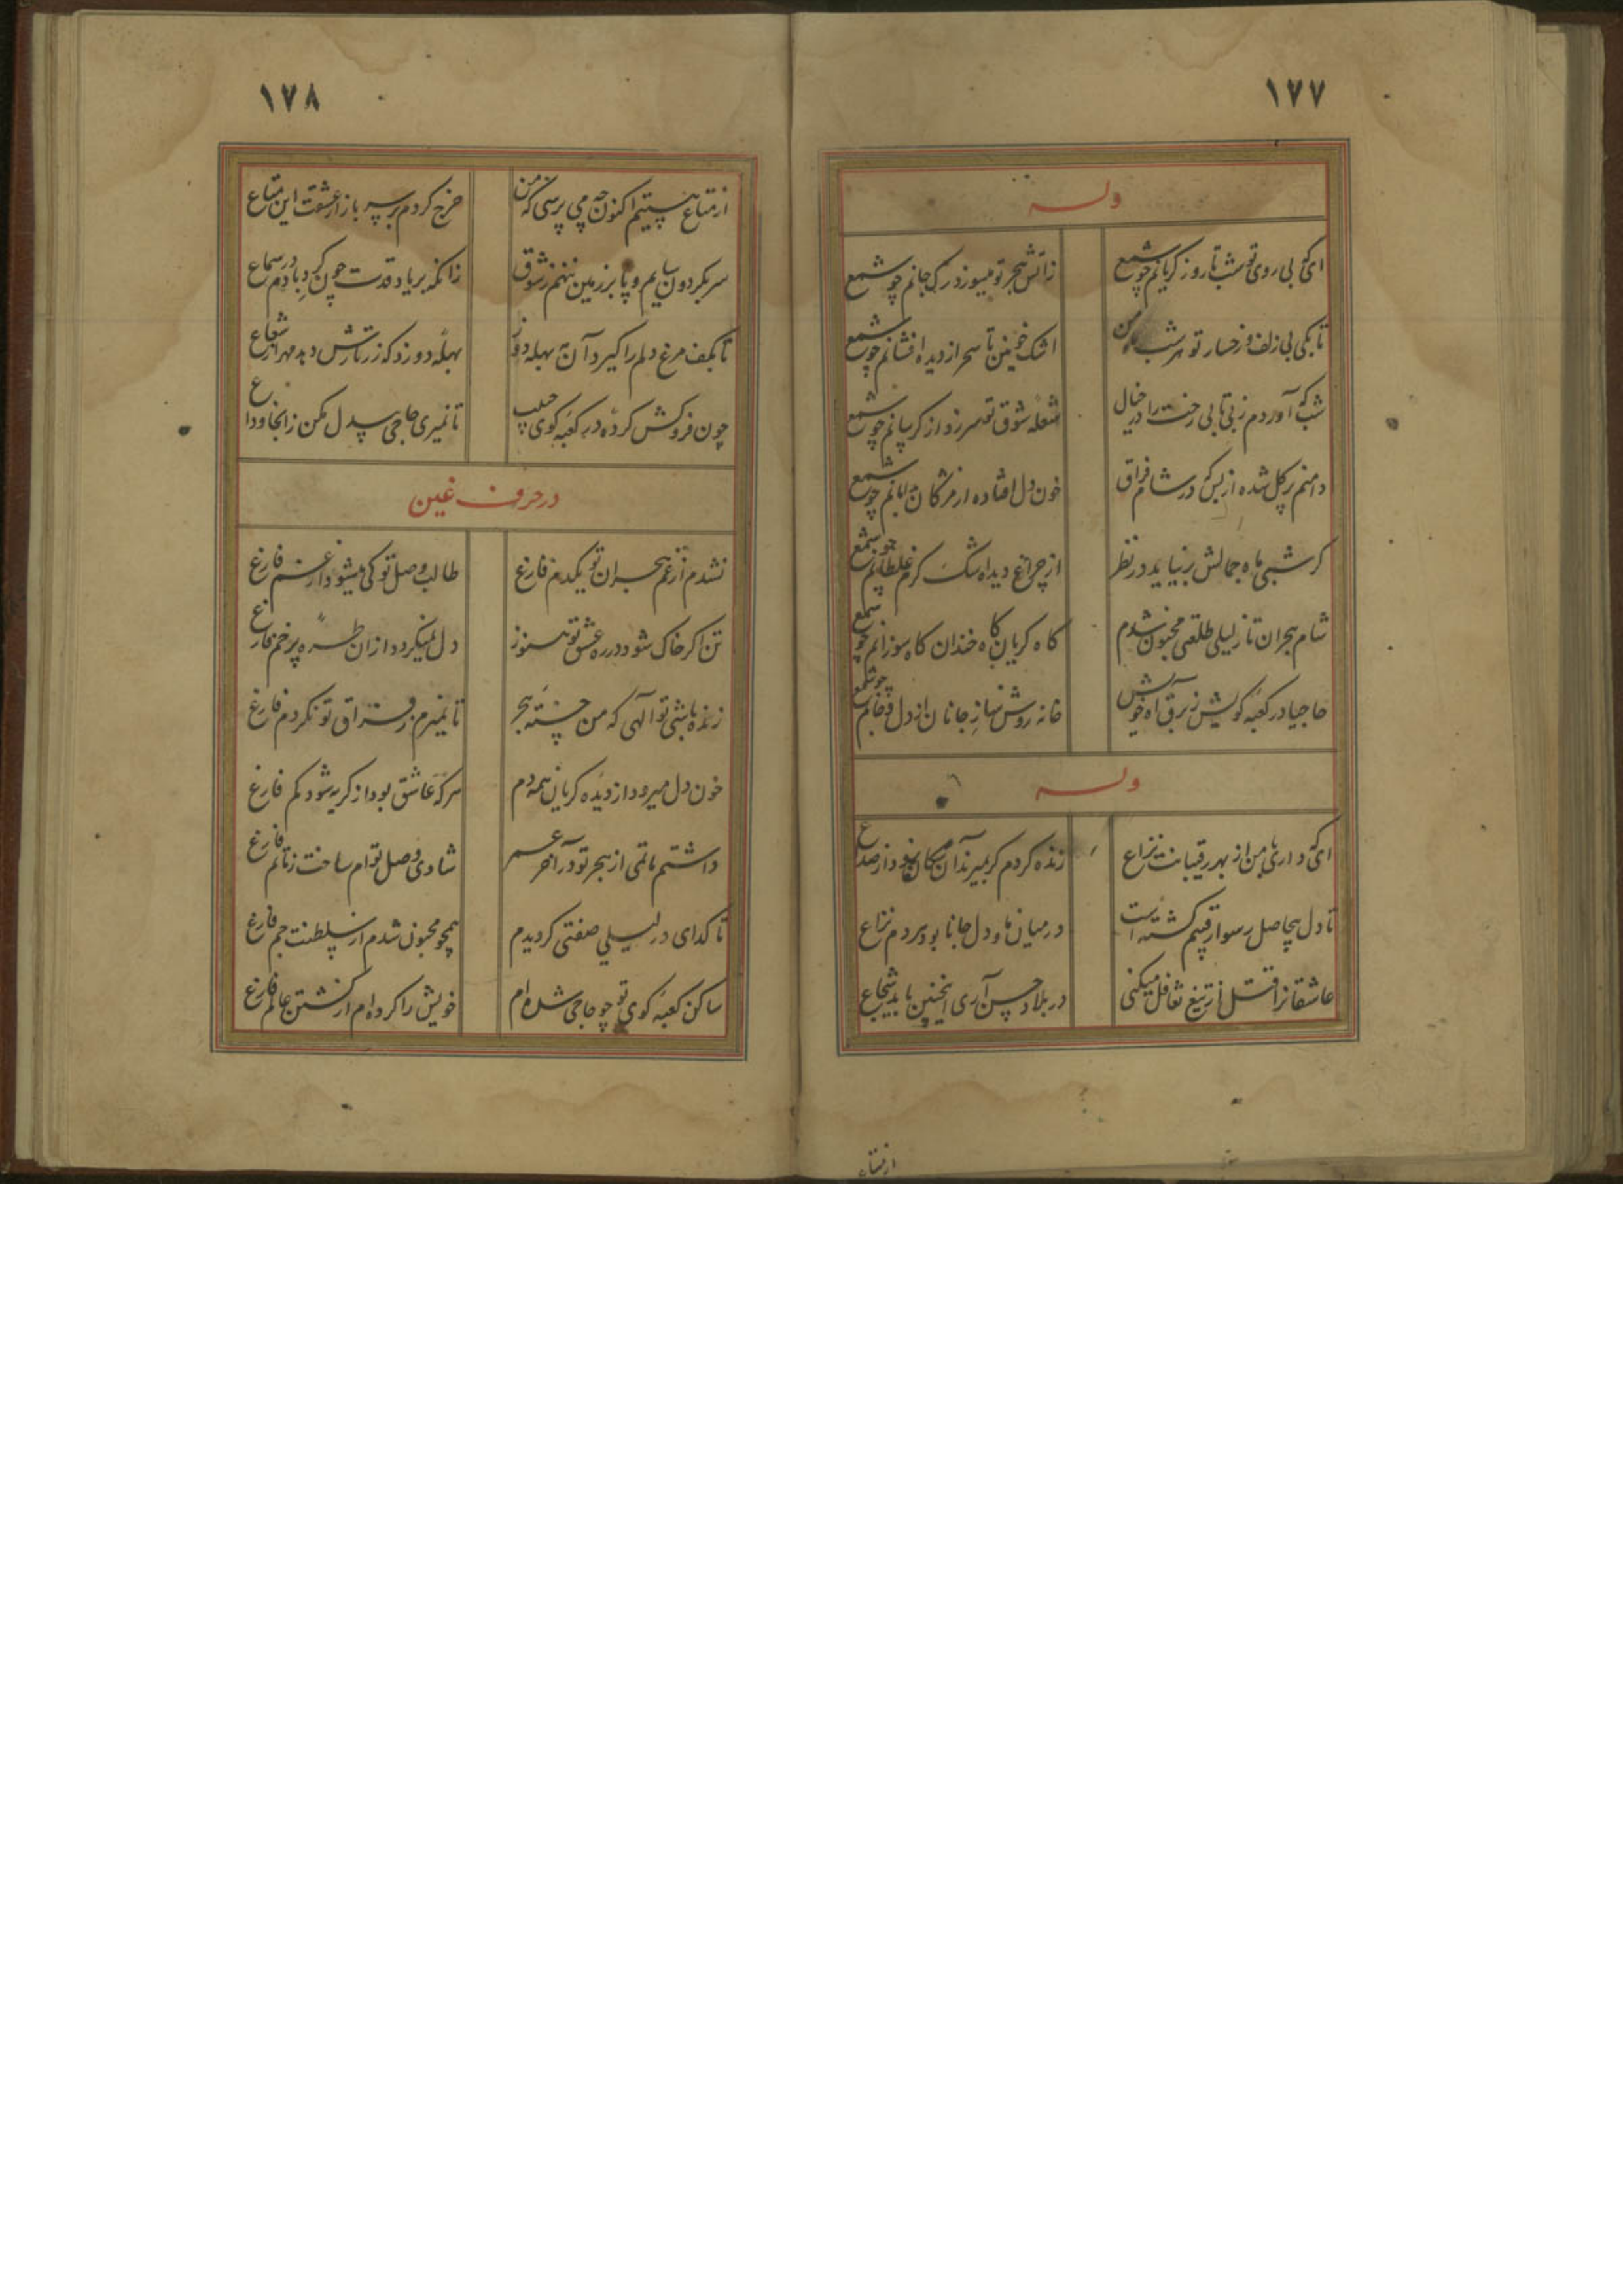 ١٧٧
وله
ای که بی روی تو شب تا روز گریانم چو شمع
زاتش هجر تو میسوزد رک جانم چو شمع
تا بکی بی زلف و رخسار تو هر شب من
اشک خونین تا سحر از دیده افشانم چو شمع
شب که آوردم ز بی تابی رخت را در خیال
شعله شوق تو سر زد از کریبانم چو شمع
دامنم پر کل شده از بس که در شام فراق
خون دل افتاده از مژکان بدامانم چو شمع
کر شبی ماه جمالش بر نیاید در نظر
از چراغ دیده اشک کرم غلطانم چو شمع
شام هجران تا ز لیلی طلعتی مجنون شدم
کاه کریان کاه خندان کاه سوزانم چو شمع
حاجیا در کعبه کویش ز برق آه خویش
خانه روشن ساز جانان از دل و جانم چو شمع
وله
ای که داری با من از بهر رقیبانت نزاع
زنده کردم کر بمیرند آن سکان از صداع
تا دل بیحاصل رسوا رقیبم کشته است
در میان ما و دل جانا بود هر دم نزاع
عاشقانرا قتل از تیغ تغافل میکنی
در بلاد حسن آری اینچنین باید شجاع
ازمتاع
١٧٨
ازمتاع هستیم اکنون چه می پرسی که من
خرج کردم بر سر بازار عشقت این متاع
سر بکردون سایم و پا بر زمین ننهم ز شوق
زانکه بر یاد قدت چون کردبادم در سماع
تا بکف مرغ دلم را کیرد آن بهله دوز
بهله دوزد که زر تارش دهد مهر از شعاع
چون فروکش کرده در کعبه کوی حبیب
تا نمیری حاجی بیدل مکن زانجا وداع
در حرف غین
نشدم از غم هجران تو یکدم فارغ
طالب وصل تو کی میشود از غم فارغ
تن اکر خاک شود در ره عشق تو هنوز
دل نمیکردد از ان طره پر خم فارغ
زنده باشی تو الهی که من خسته هجر
تا نمیرم ز فراق تو نکردم فارغ
خون دل میرود از دیده کریان همه دم
هر که عاشق بود از کریه شود کم فارغ
داشتم ماتمی از هجر تو در آخر عمر
شادی وصل توام ساخت ز ماتم فارغ
تا کدای در لیلی صفتی کردیدم
همچو مجنون شدم از سلطنت جم فارغ
ساکن کعبه کوی تو چو حاجی شده ام
خویش را کرده ام از کشتن عالم فارغ